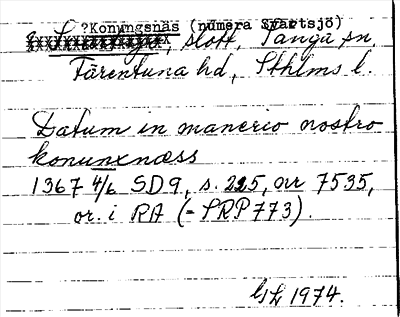 ?Konungsnäs (numera Svartsjö)
slott, Sånga sn,
Färentuna hd, Sthlms l.
Datum in manerio nostro
konunxnæss
1367 4/6 SD 9, s. 225, nr 7535,
or. i RA (= SRP 773).
1974.